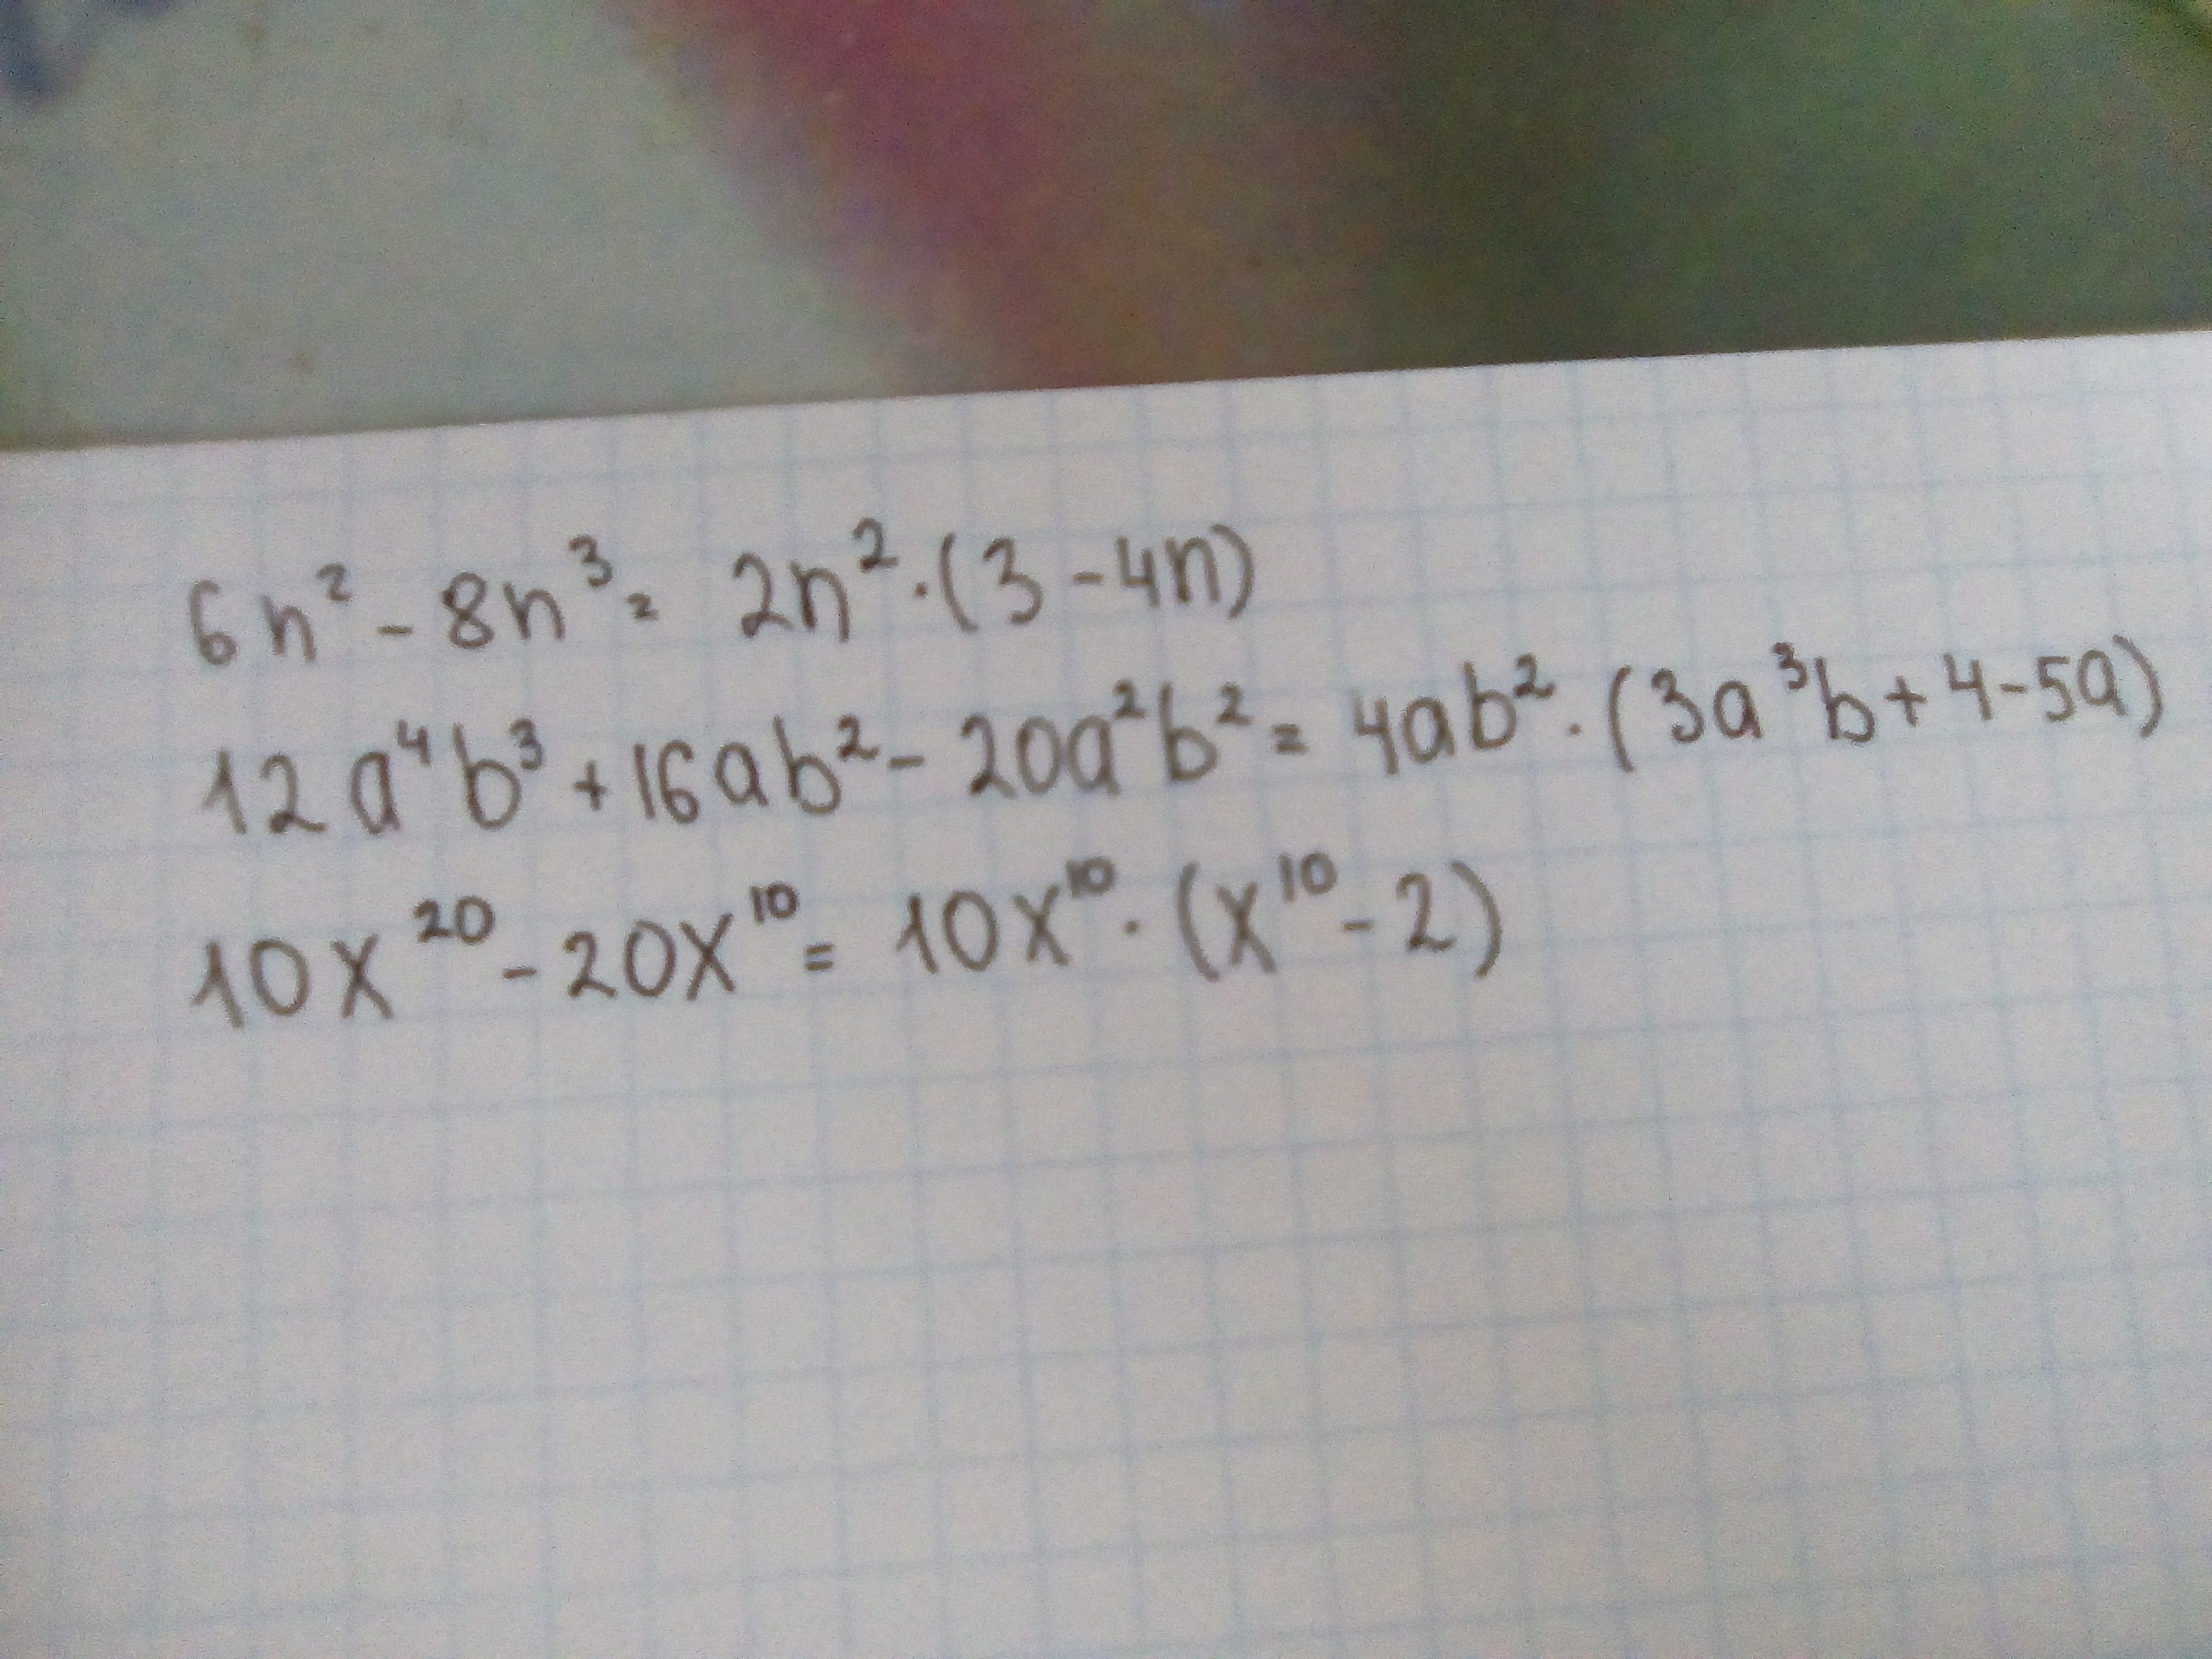 6n² - 8n³ = 2n² · (3 - 4n)
12a⁴b³ + 16ab² - 20a²b² = 4ab² · (3a³b + 4 - 5a)
10x²⁰ - 20x¹⁰ = 10x¹⁰ · (x¹⁰ - 2)